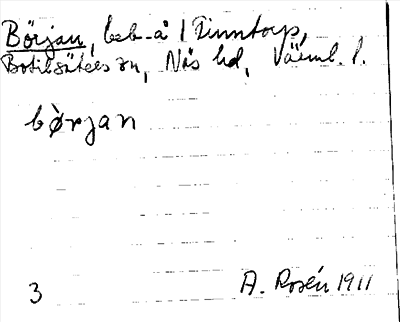 Början, beb. å 1 Finntorp,
Botilsäters sn, Näs hd, Värml. l.
bö̀rjan
3 A. Rosén 1911